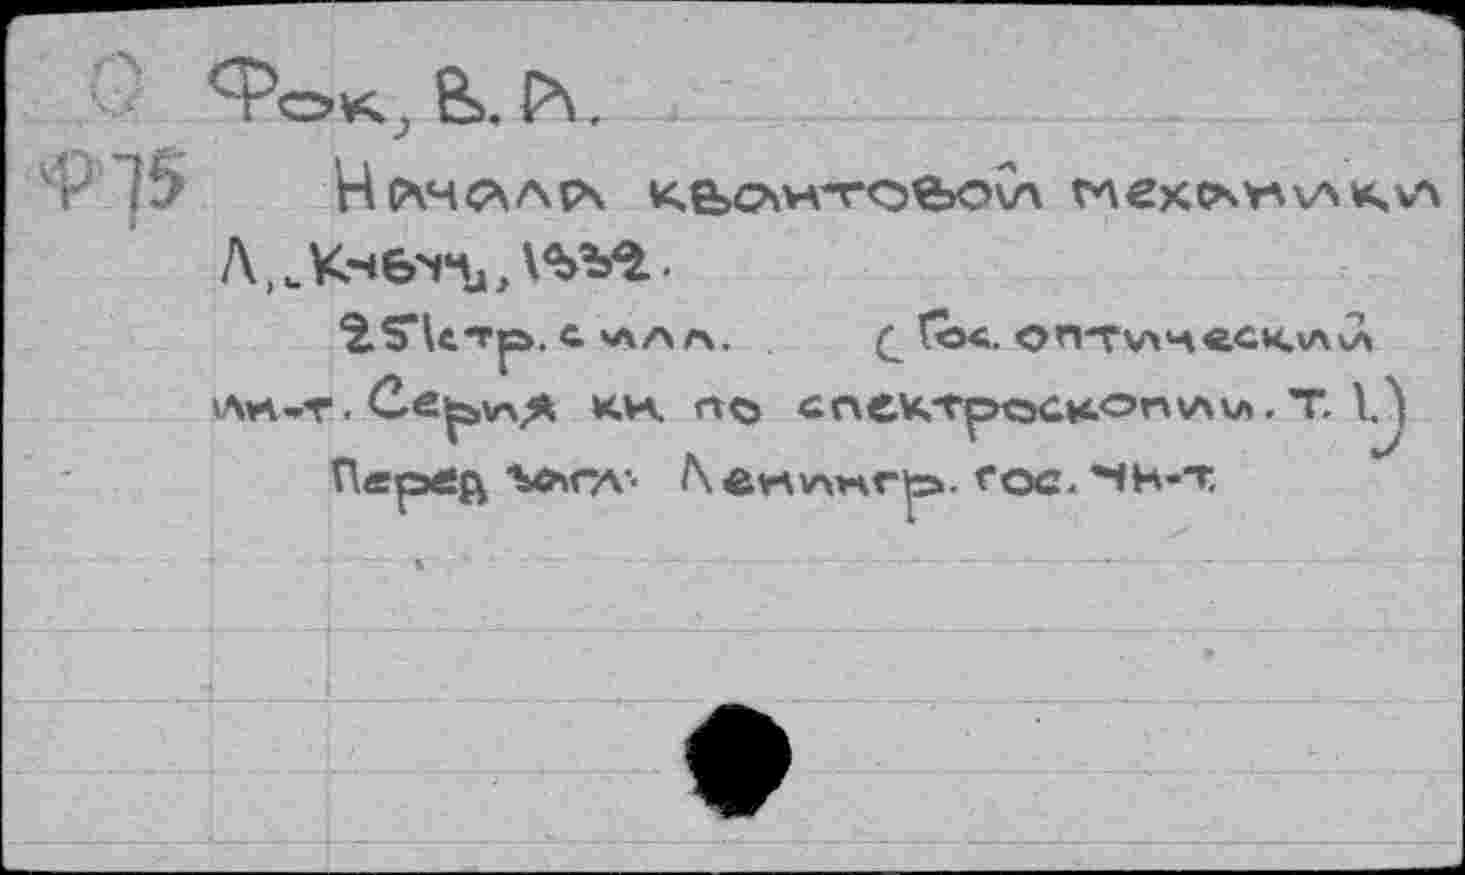 О Фок, В. А.
Ф75 Начала квантовой механики
Л., Кубуч, 1932.
251 стр. с илл. (Гос. оптический
ин-т. Серия кн. по спектроскопии. Т. 1.)
Перед загл. Ленингр. гос. ун-т.